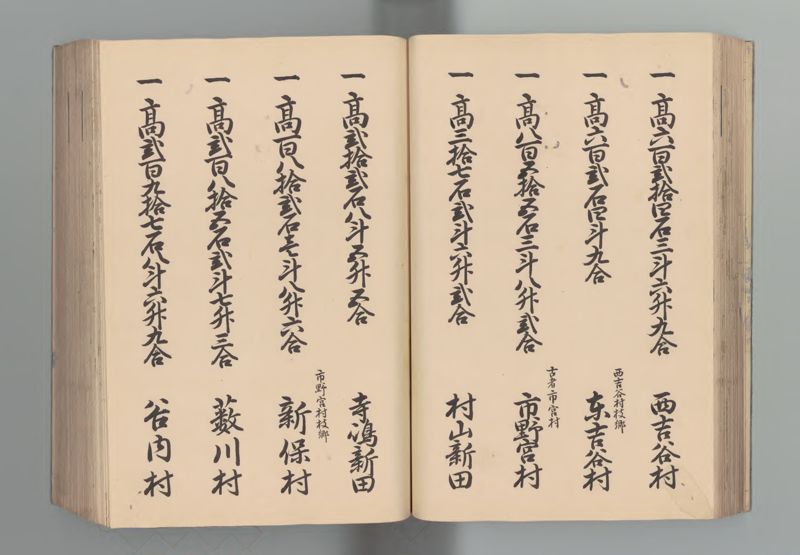 一 高六百弐拾四石三斗六升九合 西吉谷村
一 高六百弐石四斗九合
西吉谷村枝郷
东吉谷村
一 高八百五拾五石三斗八升弐合
古者市宮村
市野宮村
一 高三拾七石弐斗六升弐合 村山新田
一 高弐拾弐石八斗五升五合 寺嶋新田
一 高百八拾弐石壱斗八升六合
市野宮村枝郷
新保村
一 高弐百八拾五石弐斗七升三合 薮川村
一 高弐百九拾七石八斗六升九合 谷内村